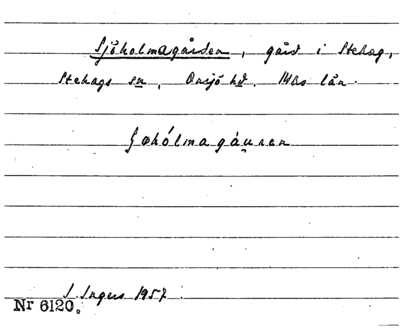 Sjöholmagården, gård i Stehag,
Stehags sn, Onsjö hd. Mäs län.
ʃøhólmagáu̯ren
S. Ingers 1957.
Nr 6120.